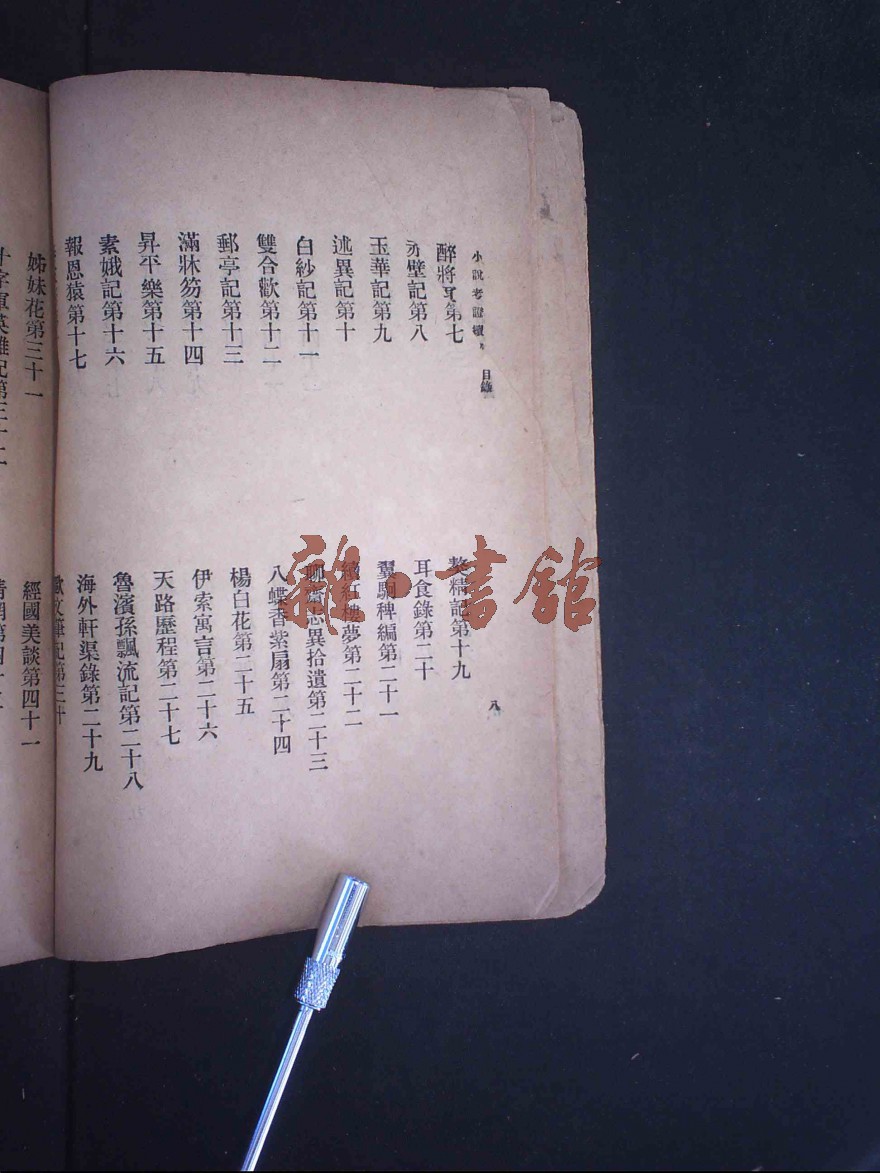 小說考證續 目錄
醉將軍第七
赤壁記第八
玉華記第九
述異記第十
白紗記第十一
雙合歡第十二
郵亭記第十三
滿牀笏第十四
昇平樂第十五
素娥記第十六
報恩猿第十七
糉記第十九
耳食錄第二十
翼駉稗編第二十一
續紅樓夢第二十二
聊齋志異拾遺第二十三
八蝶香紫扇第二十四
楊白花第二十五
伊索寓言第二十六
天路歷程第二十七
魯濱孫飄流記第二十八
海外軒渠錄第二十九
歐文筆記第三十
八
姊妹花第三十一
十字軍英雄記第三十二
經國美談第四十一
情網第四十二
雜·書館